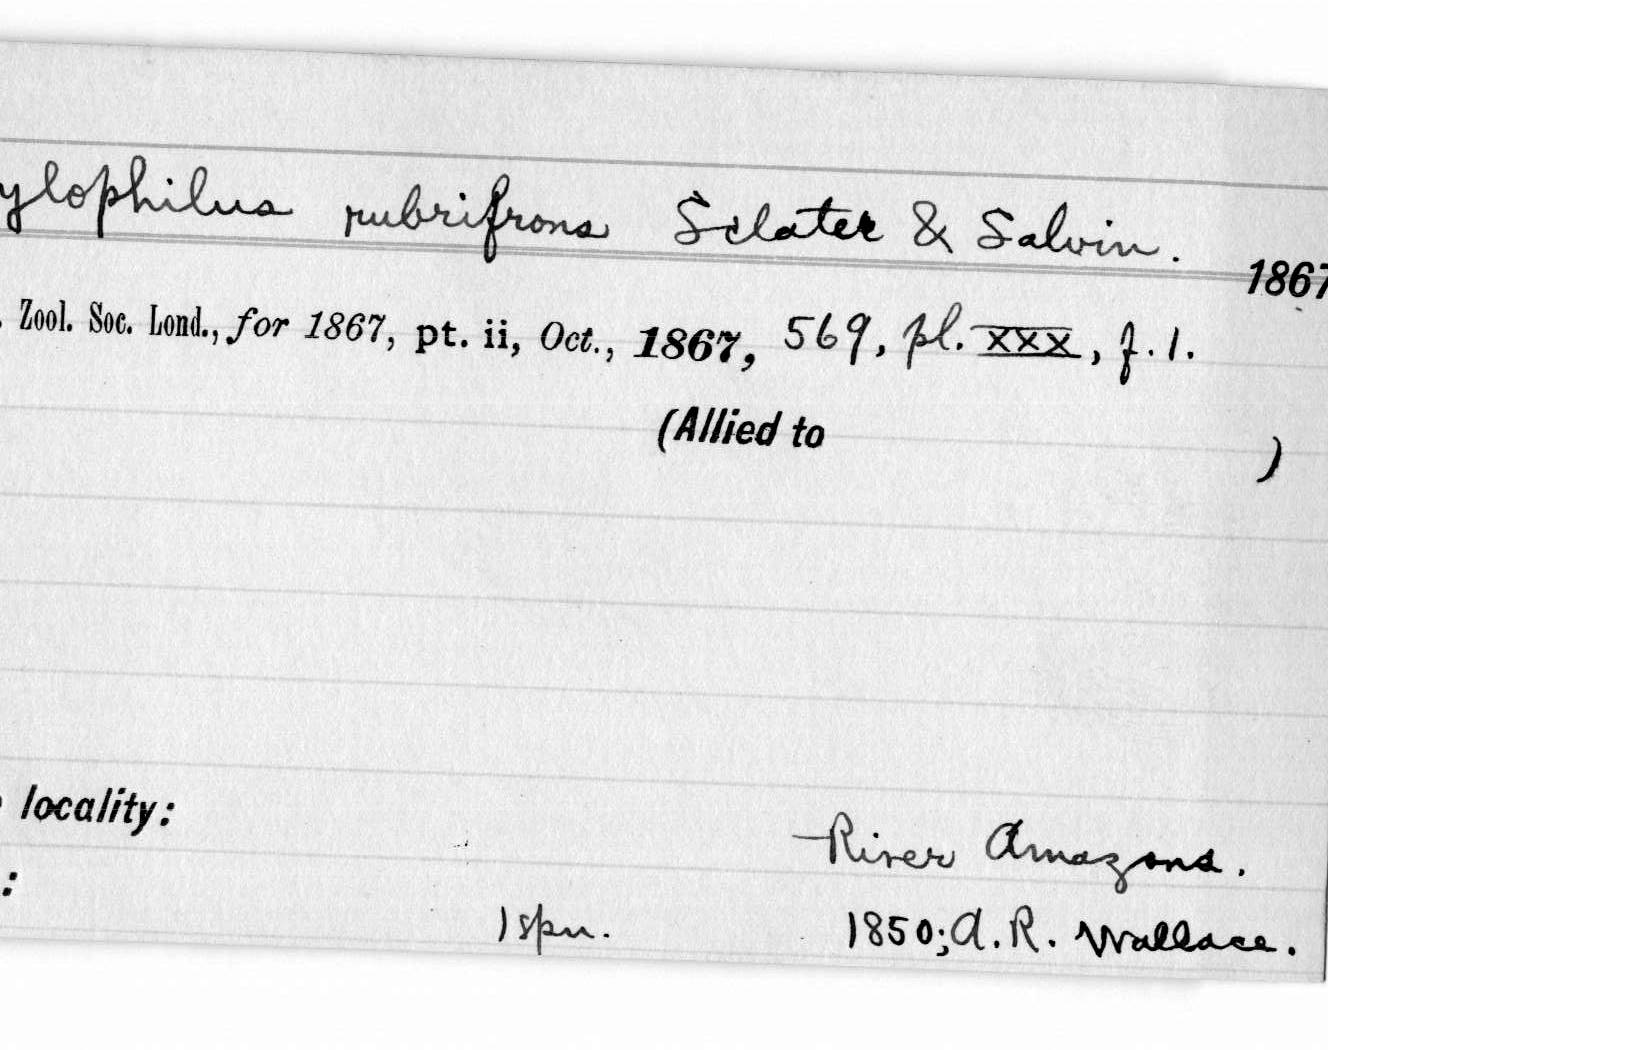 ylophilus rubrifrons Sclater & Salvin. 1867
. Zool. Soc. Lond., for 1867, pt. ii, Oct., 1867, 569, pl. XXX, f. 1.
(Allied to )
locality: River Amazons.
: 1 spn. 1850; A. R. Wallace.